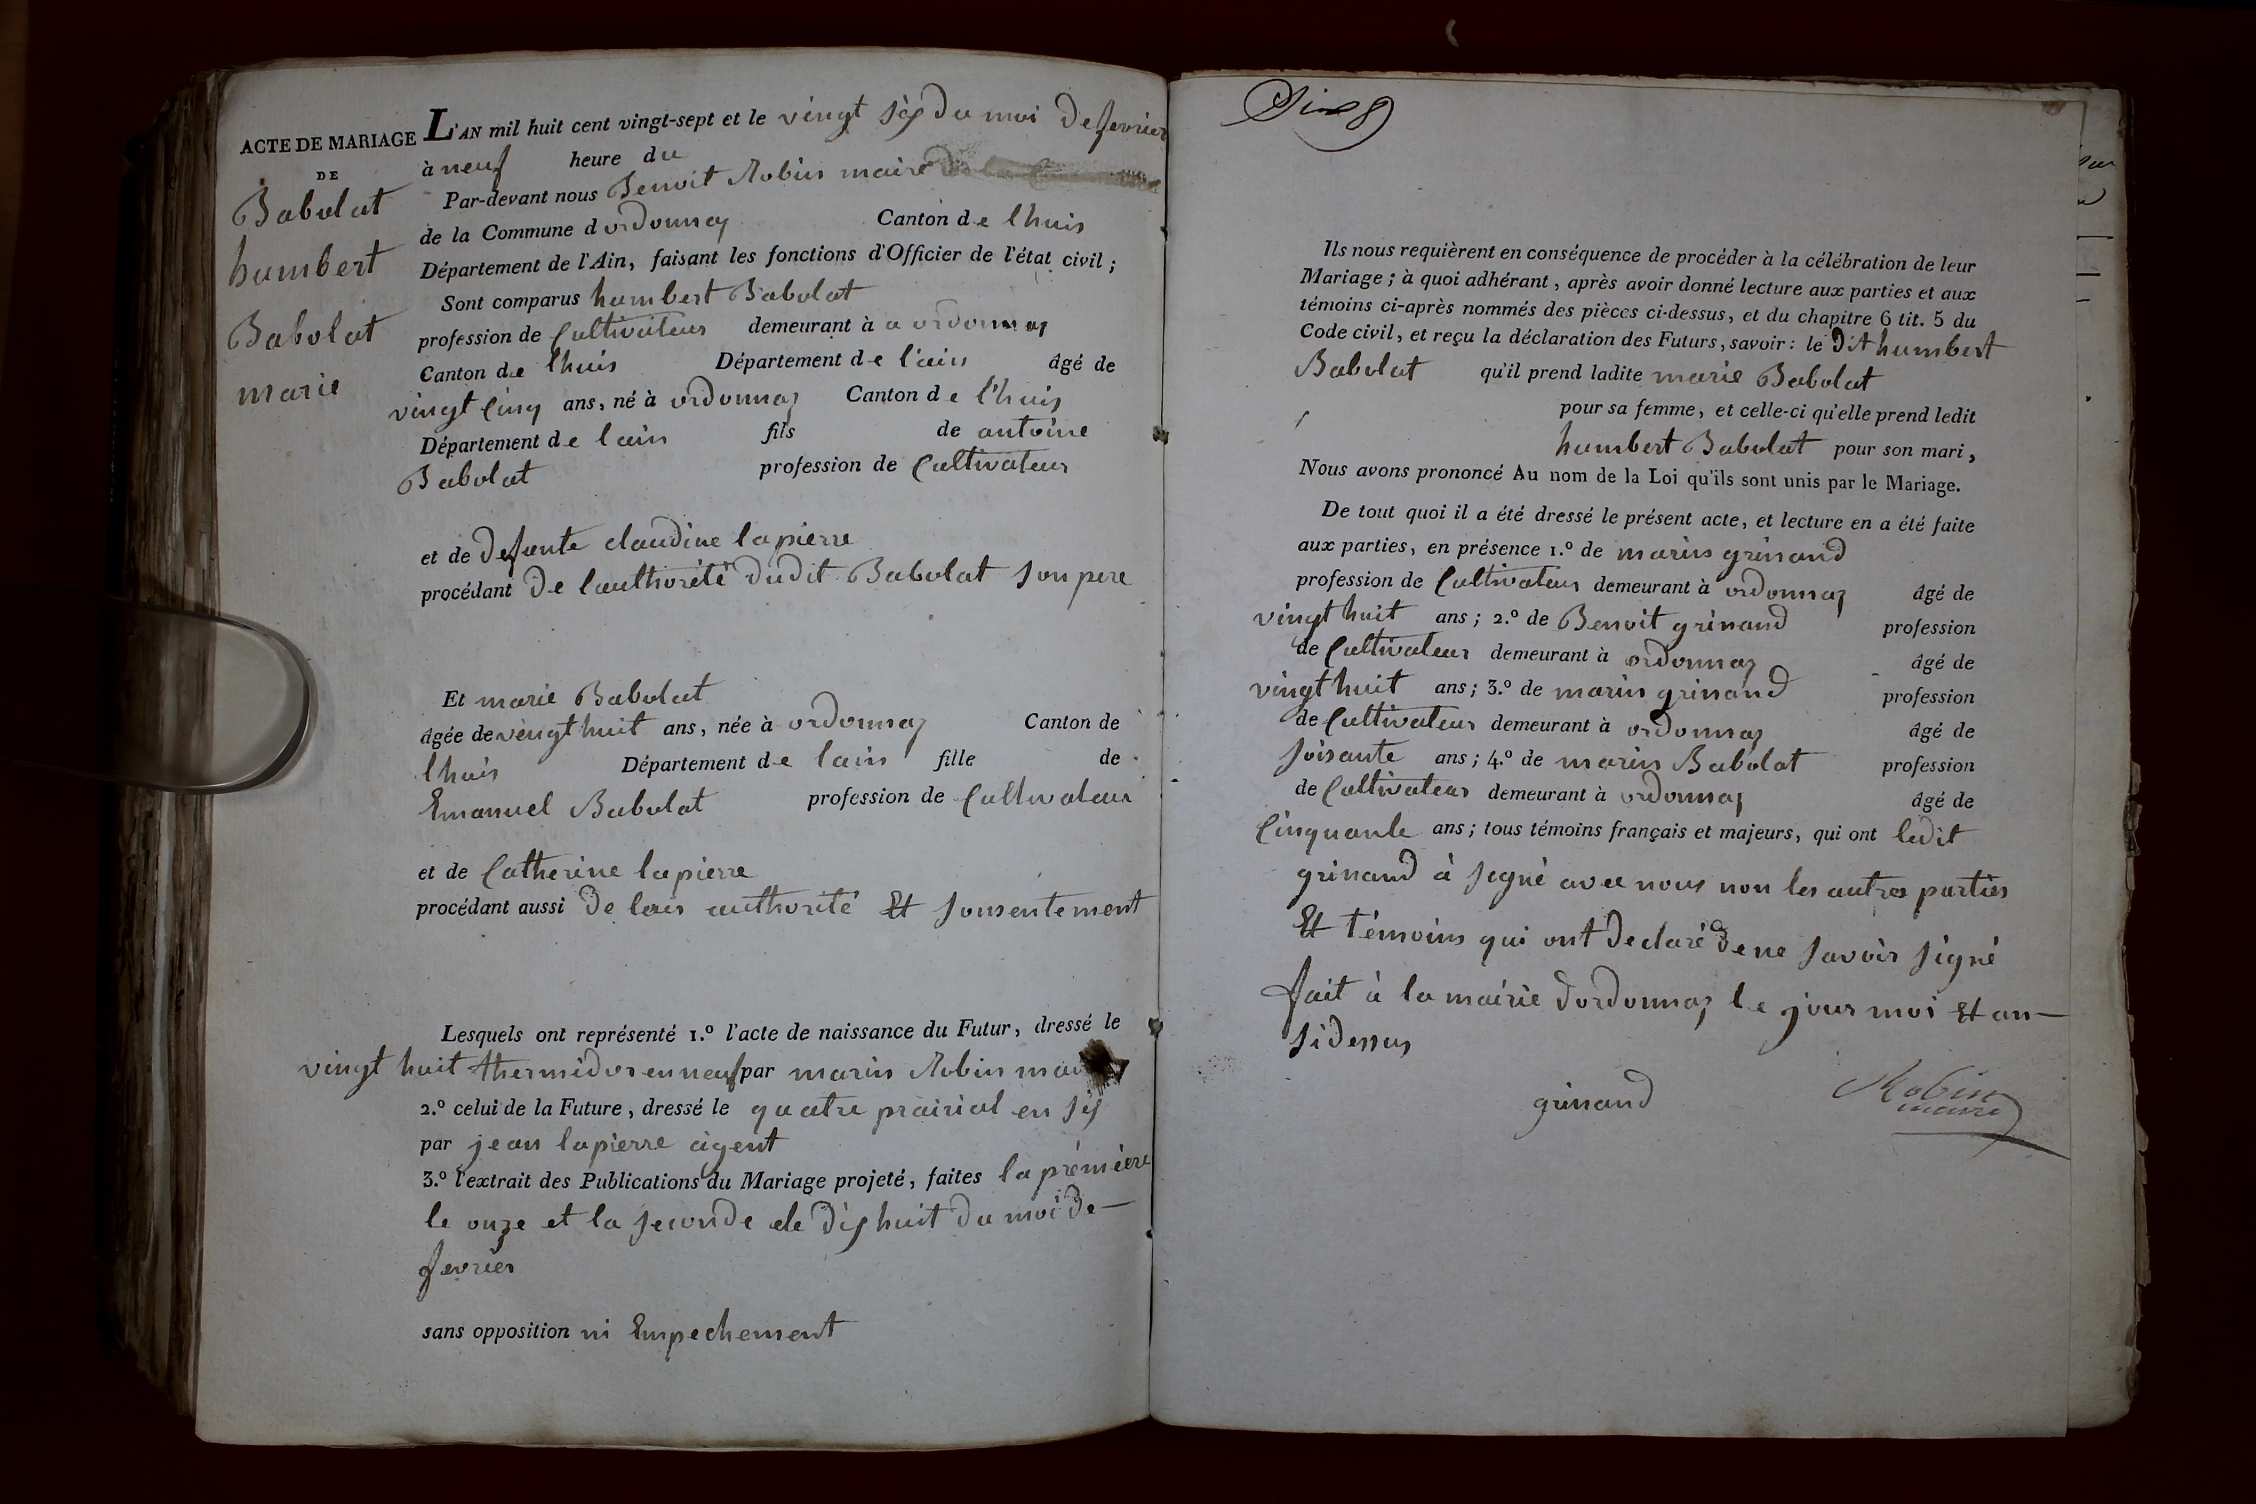 ACTE DE MARIAGE
DE
Babolat
humbert
Babolat
marie
L'AN mil huit cent vingt-sept et le vingt six du moi de fevrier
à neuf heure du
Par-devant nous Benoit Robin maire
de la Commune d ordonnaz Canton de lhuis
Département de l'Ain, faisant les fonctions d'Officier de l'état civil ;
Sont comparus humbert Babolat
profession de Cultivateur demeurant à a ordonnaz
Canton de lhuis Département de l'ain âgé de
vingt Cinq ans, né à ordonnaz Canton de l'huis
Département de lain fils de antoine
Babolat profession de Cultivateur
et de defunte claudine lapierre
procédant de l'authorité dudit Babolat son pere
Et marie Babolat
âgée de vingt huit ans, née à ordonnaz Canton de
lhuis Département de lain fille de
Emanuel Babolat profession de Cultivateur
et de Catherine lapierre
procédant aussi de leur authorité Et sonsentement
Lesquels ont représenté 1.º l'acte de naissance du Futur, dressé le
vingt huit thermidor en neuf par marin Robin
2.º celui de la Future, dressé le quatre prairial en six
par jean lapierre agent
3.º l'extrait des Publications du Mariage projeté, faites la première
le onze et la seconde ele dix huit du moi de —
fevrier
sans opposition ni Empechement
Ils nous requièrent en conséquence de procéder à la célébration de leur
Mariage ; à quoi adhérant, après avoir donné lecture aux parties et aux
témoins ci-après nommés des pièces ci-dessus, et du chapitre 6 tit. 5 du
Code civil, et reçu la déclaration des Futurs, savoir : le dit humbert
Babolat qu'il prend ladite marie Babolat
pour sa femme, et celle-ci qu'elle prend ledit
humbert Babolat pour son mari,
Nous avons prononcé Au nom de la Loi qu'ils sont unis par le Mariage.
De tout quoi il a été dressé le présent acte, et lecture en a été faite
aux parties, en présence 1.º de marin grinand
profession de Cultivateur demeurant à ordonnaz âgé de
vingt huit ans ; 2.º de Benoit grinand profession
de Cultivateur demeurant à ordonnaz âgé de
vingt huit ans ; 3.º de marin grinand profession
de Cultivateur demeurant à ordonnaz âgé de
soisante ans ; 4.º de marin Babolat profession
de Cultivateur demeurant à ordonnaz âgé de
Cinquante ans ; tous témoins français et majeurs, qui ont ledit
grinand à segné avec nous non les autres parties
Et témoins qui ont declaré de ne savoir signé
fait à la mairie d'ordonnaz le jour moi Et an —
sidessus
grinand
Robin
maire